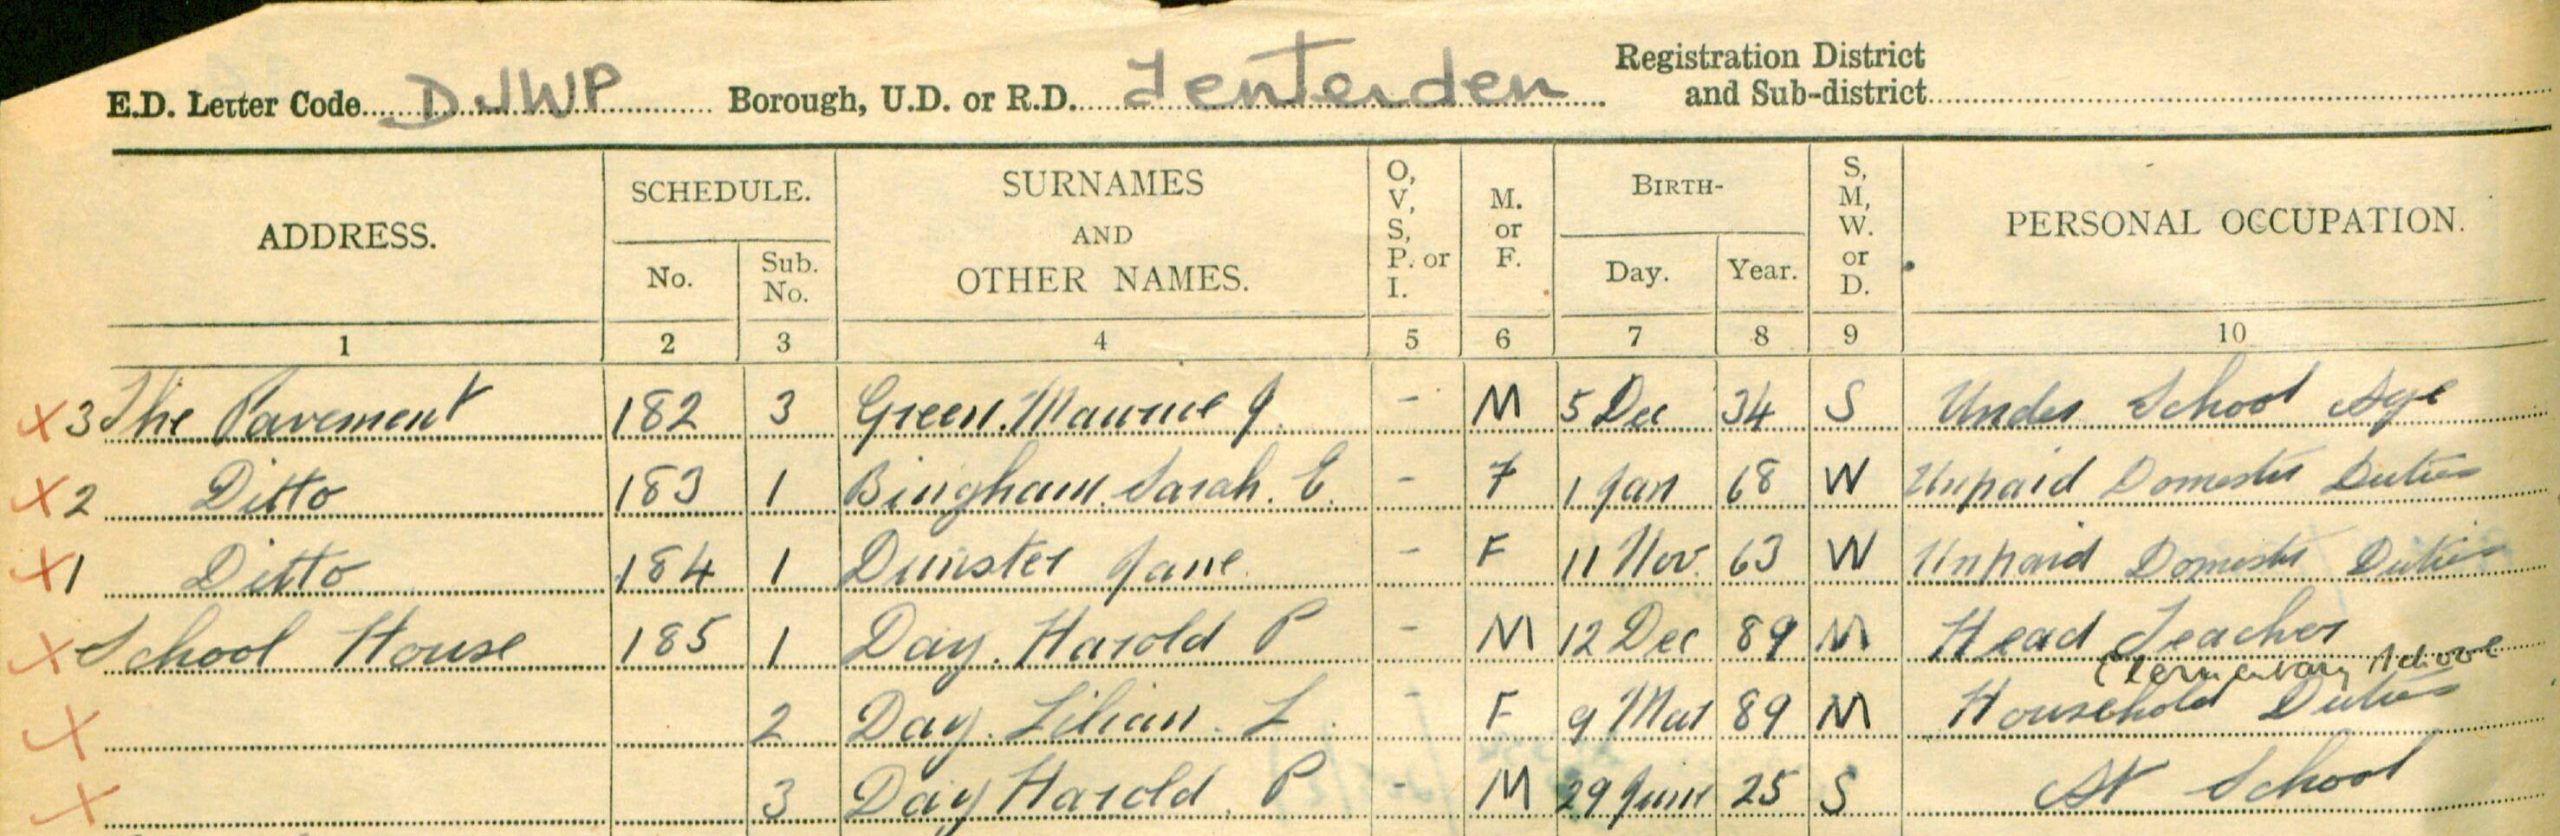 E.D. Letter Code DJWP Borough, U.D. or R.D. Tenterden Registration District and Sub-district
ADDRESS. SCHEDULE. No. Sub. No. SURNAMES AND OTHER NAMES. O, V, S, P. or I. M. or F. BIRTH- Day. Year. S, M, W. or D. PERSONAL OCCUPATION.
1 2 3 4 5 6 7 8 9 10
X 3 The Pavement 182 3 Green. Maurice J. - M 5 Dec 34 S Under School Age
X 2 Ditto 183 1 Bingham. Sarah. E. - F 1 Jan 68 W Unpaid Domestic Duties
X 1 Ditto 184 1 Dunster Jane - F 11 Nov 63 W Unpaid Domestic Duties
X School House 185 1 Day. Harold P - M 12 Dec 89 M Head Teacher
Elementary School
X 2 Day. Lilian. L. - F 9 Mar 89 M Household Duties
X 3 Day Harold. P - M 29 June 25 S At School